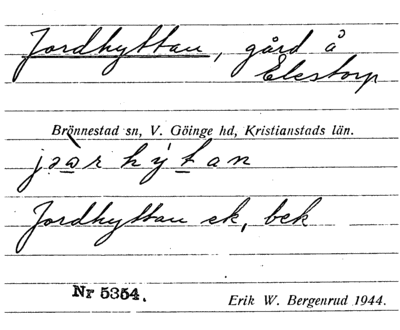 Jordhyttan, gård å
Elestorp
Brönnestad sn, V. Göinge hd, Kristianstads län.
Jordhyttan ek, bek
Nr 5354.
Erik W. Bergenrud 1944.